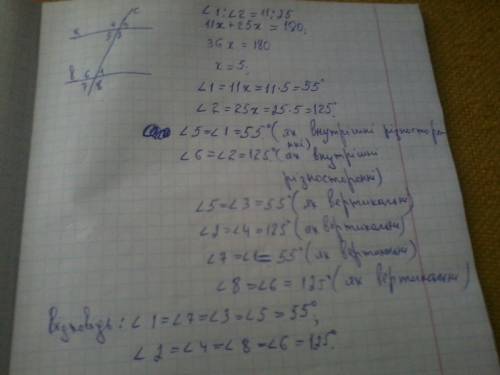 ∠1:∠2=11:25
11x+25x=180;
36x=180
x=5;
∠1=11x=11·5=55°
∠2=25x=25·5=125°.
∠5=∠1=55° (як внутрішні різносторонні)
∠6=∠2=125° (як внутрішні
різносторонні)
∠5=∠3=55° (як вертикальні)
∠2=∠4=125° (як вертикальні)
∠7=∠1=55° (як вертикальні)
∠8=∠6=125° (як вертикальні)
Відповідь: ∠1=∠7=∠3=∠5=55°,
∠2=∠4=∠8=∠6=125°.